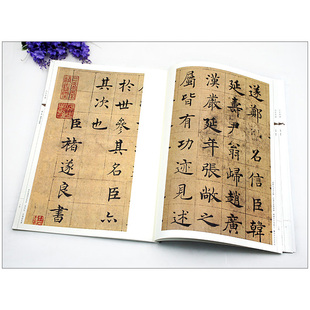 遂鄭召信臣韓
延壽尹翁歸趙廣
漢嚴延年張敞之
屬皆有功迹見述
於世參其名臣亦
其次也
臣褚遂良書